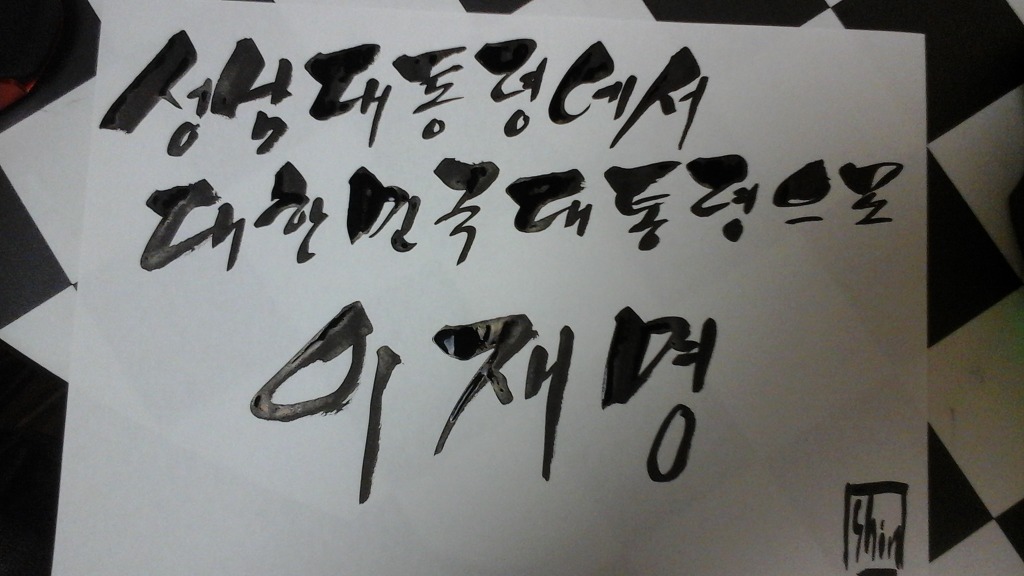 성남대통령에서
대한민국대통령으로
이재명
Shin